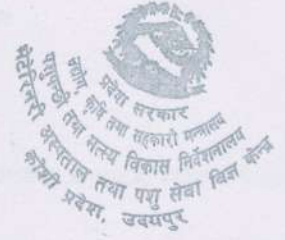 प्रदेश सरकार
उद्योग, कृषि तथा सहकारी मन्त्रालय
पशुपन्छी तथा मत्स्य विकास निर्देशनालय
भेटेरिनरी अस्पताल तथा पशु सेवा विज्ञ केन्द्र
कोशी प्रदेश, उदयपुर